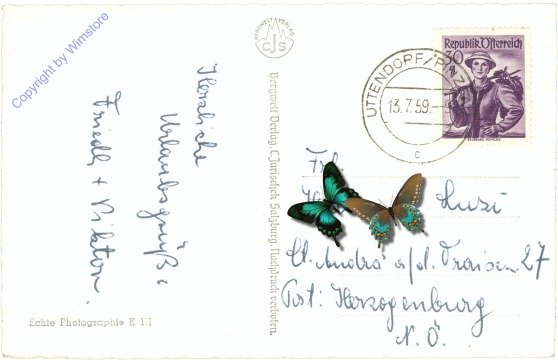 Copyright by Wimstore
BERGWELTVERLAG
C J S
Republik Österreich
30
UTTENDORF/PINZ
13.7.59.
c
Herzliche
Urlaubsgrüße
Friedl + Viktor.
Bergwelt Verlag. C. Jurischek Salzburg. Nachdruck verboten.
Luzi
St. Andrä a/d. Traisen 27
Post: Herzogenburg
N. Ö.
Echte Photographie K 1.1